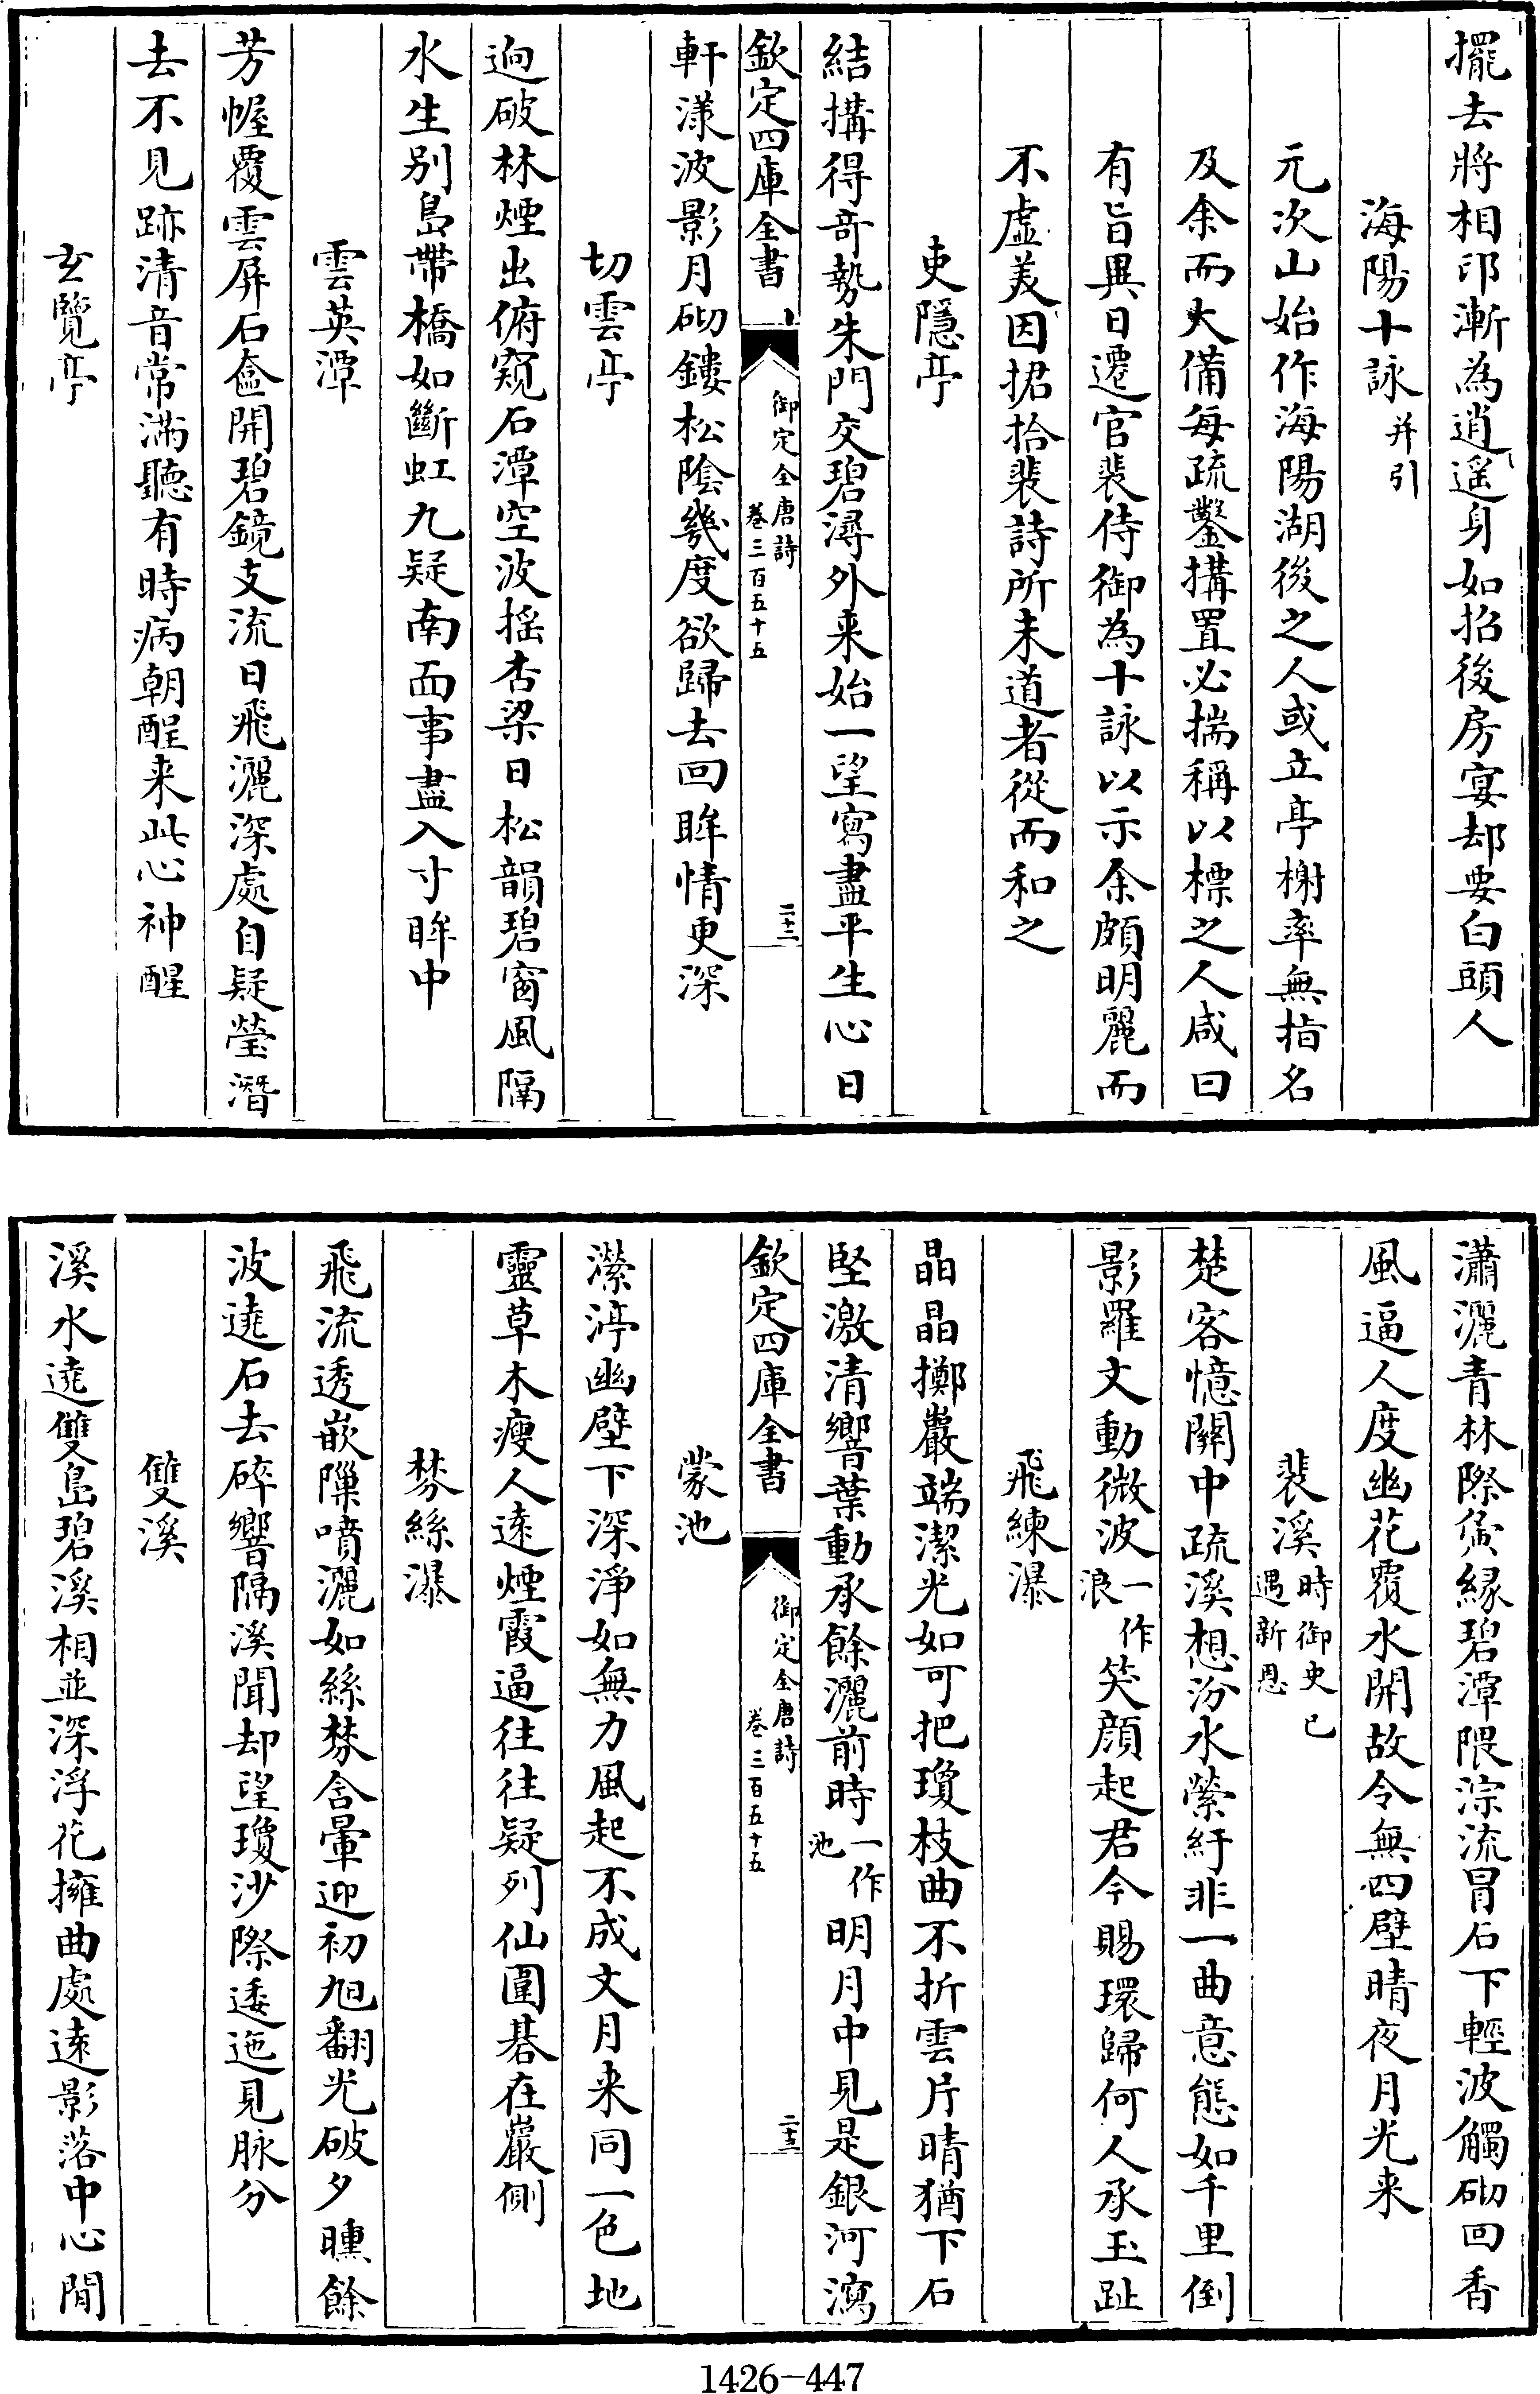 擺去將相印漸為逍遥身如招後房宴却要白頭人
海陽十詠并引
元次山始作海陽湖後之人或立亭榭率無指名
及余而大備每疏鑿構置必揣稱以標之人咸曰
有旨異日遷官裴侍御為十詠以示余頗明麗而
不虚美因捃拾裴詩所未道者從而和之
吏隱亭
結搆得奇勢朱門交碧潯外来始一望寫盡平生心日
欽定四庫全書
御定全唐詩
卷三百五十五
二十二
軒漾波影月砌鏤松陰幾度欲歸去回眸情更深
切雲亭
逈破林煙出俯窺石潭空波摇杏梁日松韻碧窗風隔
水生别島帶橋如斷虹九疑南面事盡入寸眸中
雲英潭
芳幄覆雲屏石奩開碧鏡支流日飛灑深處自疑瑩潛
去不見跡清音常滿聽有時病朝酲来此心神醒
玄覽亭
瀟灑青林際夤緣碧潭隈淙流冒石下輕波觸砌回香
風逼人度幽花覆水開故令無四壁晴夜月光来
裴溪時御史已
遇新恩
楚客憶關中疏溪想汾水縈紆非一曲意態如千里倒
影羅文動微波一作
浪笑顔起君今賜環歸何人承玉趾
飛練瀑
晶晶擲巖端潔光如可把瓊枝曲不折雲片晴猶下石
堅激清響葉動承餘灑前時一作
池明月中見是銀河瀉
欽定四庫全書
御定全唐詩
卷三百五十五
二十三
蒙池
瀠渟幽壁下深淨如無力風起不成文月来同一色地
靈草木瘦人遠煙霞逼往往疑列仙圍碁在巖側
棼絲瀑
飛流透嵌隟噴灑如絲棼含暈迎初旭翻光破夕曛餘
波遶石去碎響隔溪聞却望瓊沙際逶迤見脉分
雙溪
溪水遶雙島碧溪相並深浮花擁曲處遠影落中心閒
1426-447